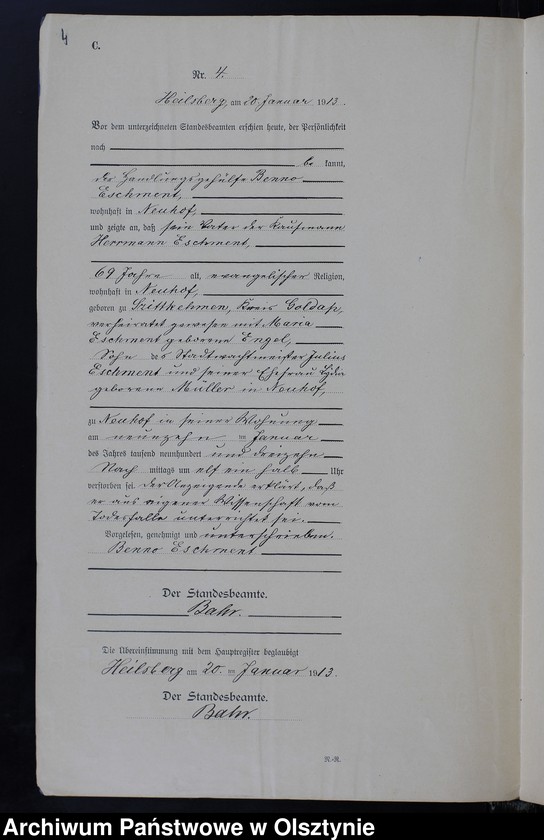 4
C.
Nr. 4.
Heilsberg, am 20. Januar 1913.
Vor dem unterzeichneten Standesbeamten erschien heute, der Persönlichkeit
nach
be kannt,
der Handlungsgehülfe Benno
Eschment,
wohnhaft in Neuhof,
und zeigte an, daß sein Vater der Kaufmann
Herrmann Eschment,
69 Jahre alt, evangelischer Religion,
wohnhaft in Neuhof,
geboren zu Szittkehmen, Kreis Goldap,
verheiratet gewesen mit Maria
Eschment geborene Engel,
Sohn des Stadtwachtmeister Julius
Eschment und seiner Ehefrau Lydia
geborene Müller in Neuhof,
zu Neuhof in seiner Wohnung
am neunzehn ten Januar
des Jahres tausend neunhundert und dreizehn
Nach mittags um elf ein halb Uhr
verstorben sei. Der Anzeigende erklärt, daß
er aus eigener Wissenschaft vom
Todesfalle unterrichtet sei.
Vorgelesen, genehmigt und unterschrieben.
Benno Eschment
Der Standesbeamte.
Bahr.
Die Übereinstimmung mit dem Hauptregister beglaubigt
Heilsberg am 20. ten Januar 1913.
Der Standesbeamte.
Bahr.
R.-R.
Archiwum Państwowe w Olsztynie